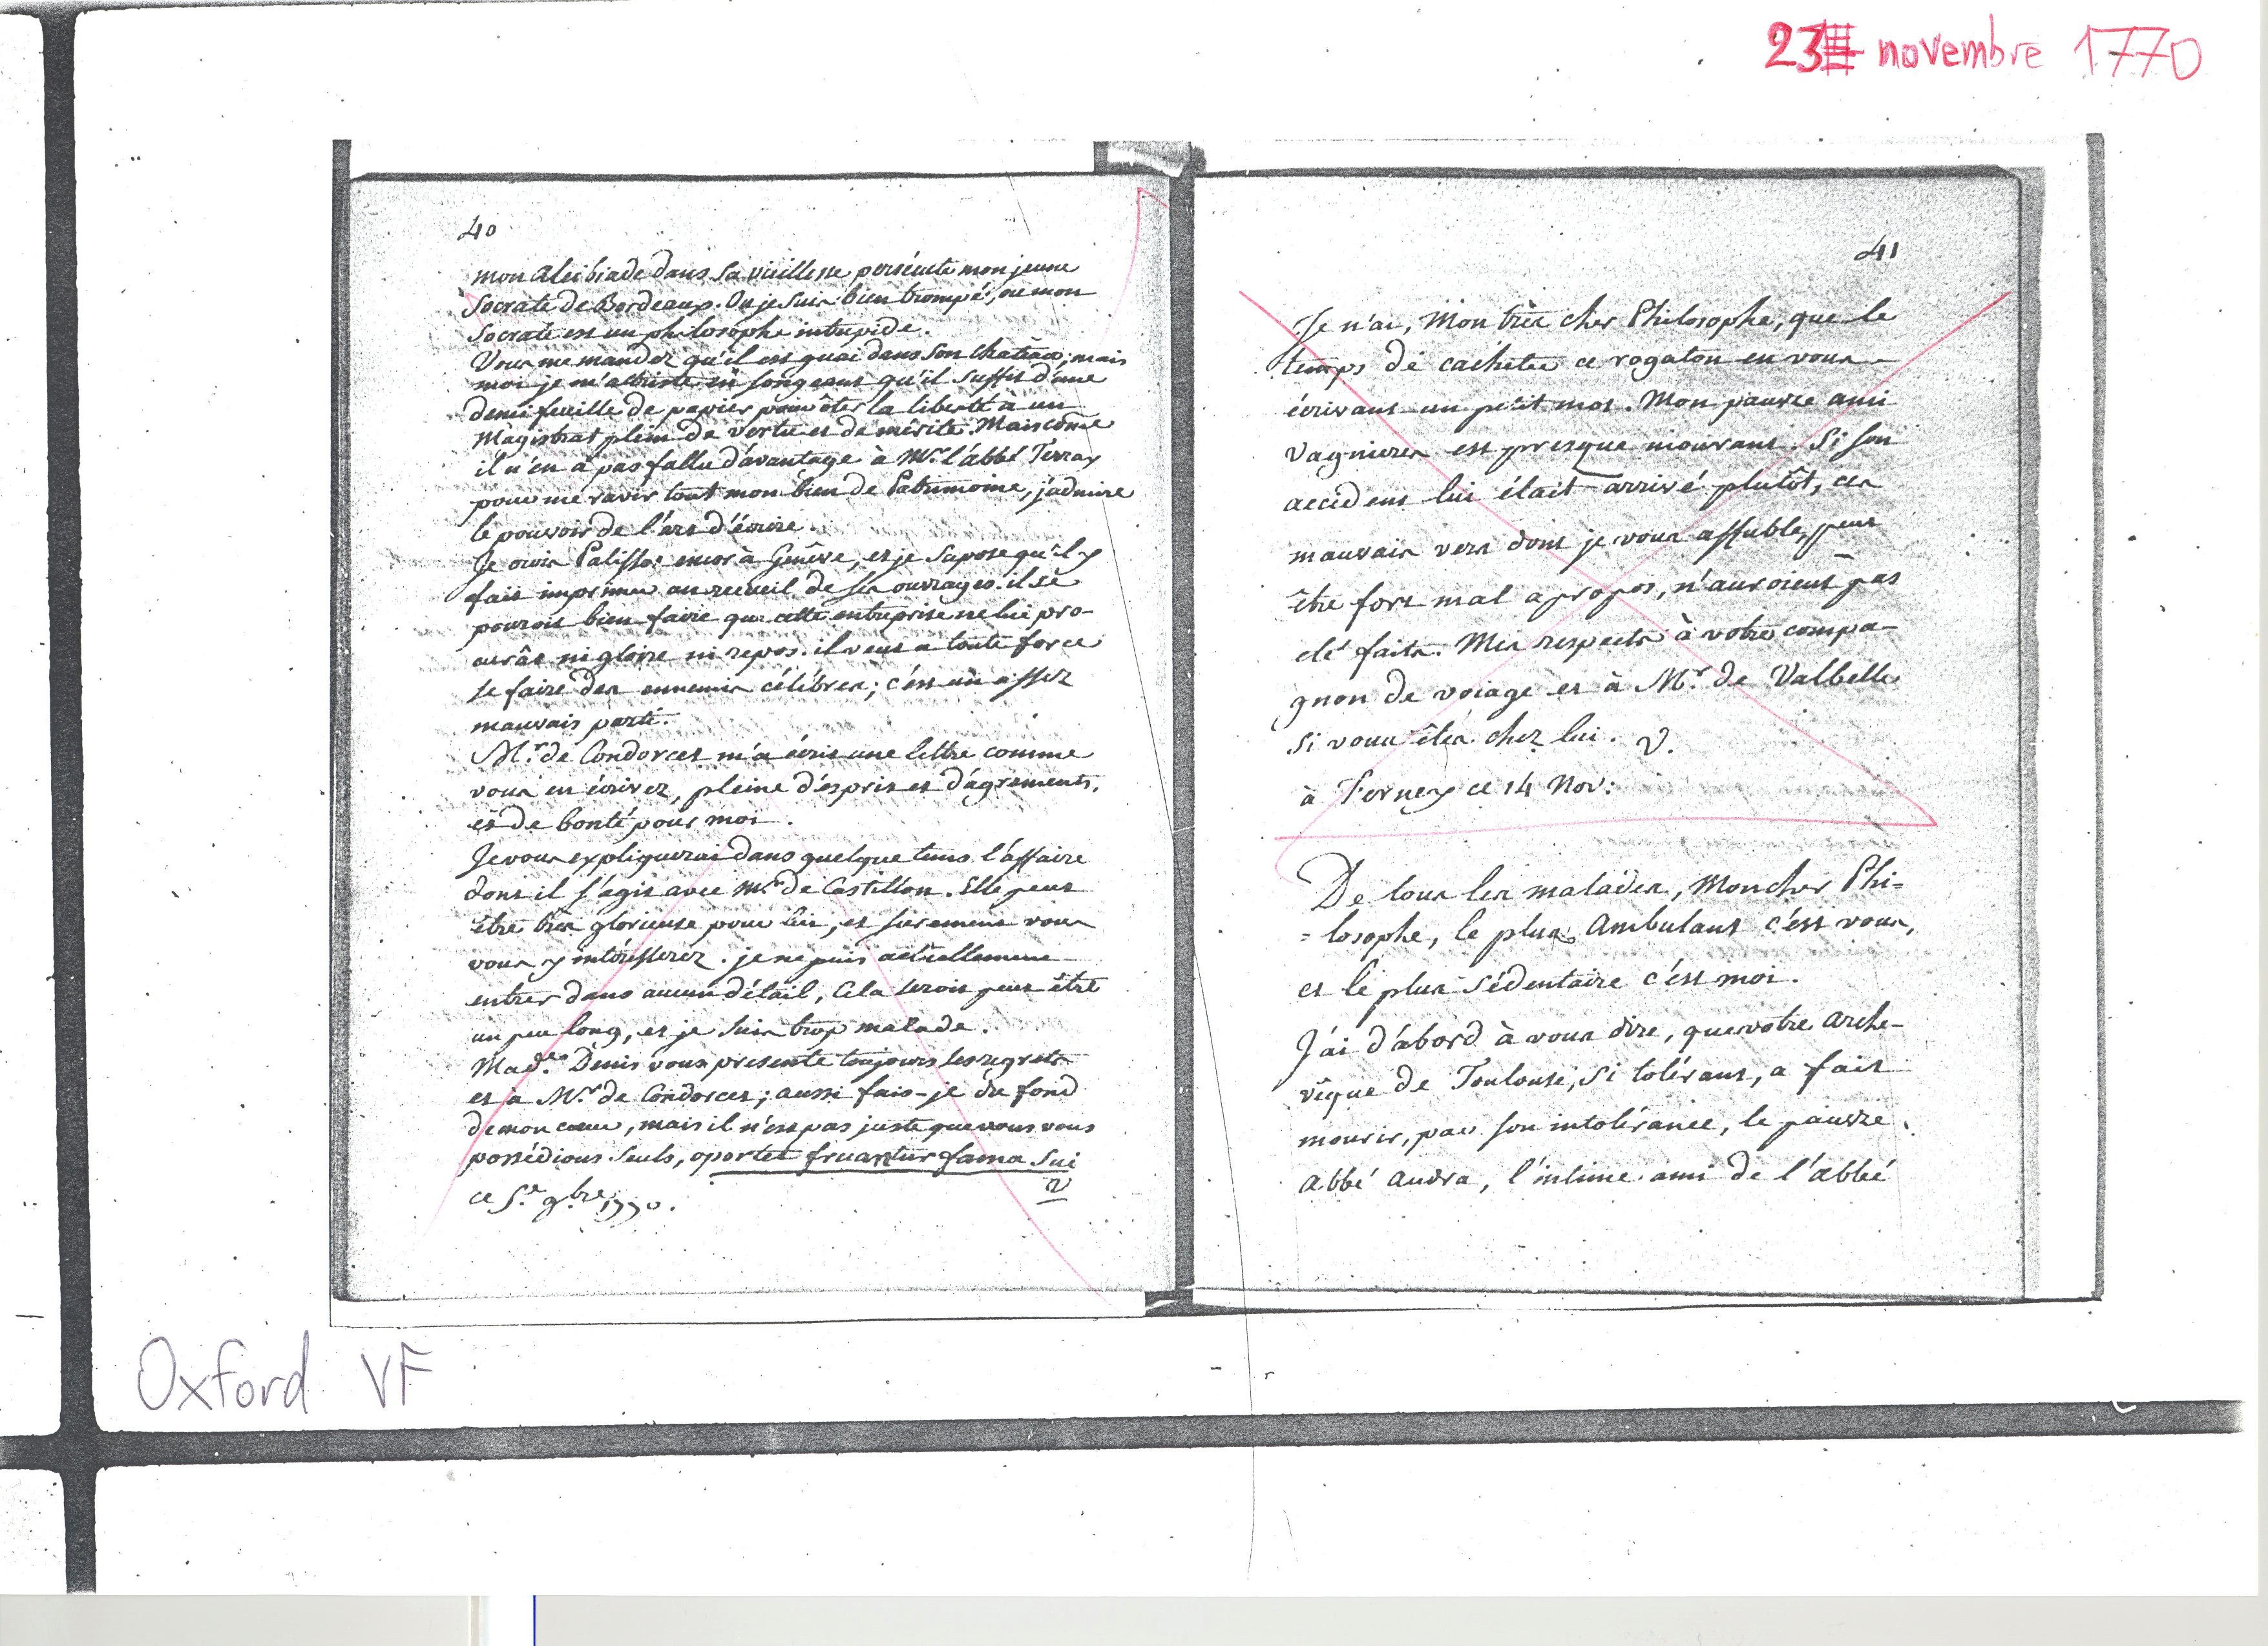 23 novembre 1770
40
mon alcibiade dans sa vieillesse persécute mon jeune
Socrate de Bordeaux. Ou je suis bien trompé, ou mon
Socrate est un philosophe intrépide.
Vous me mandez qu'il est guai dans son chateau; mais
moi je m'attriste en songeant qu'il suffit d'une
demi feuille de papier pour ôter la liberté à un
Magistrat plein de vertu et de mérite. Mais côme
il n'en a pas fallu d'avantage à Mr. l'abbé Terray
pour me ravir tout mon bien de Patrimoine, j'admire
le pouvoir de l'art d'écrire.
Je crois Palissot encor à Genêve, et je supose qu'il y
fait imprimer un recueil de ses ouvrages. il se
pourois bien faire que cette entreprise ne lui pro-
curât ni gloire ni repos. il veut a toute force
se faire des ennemis célèbres; c'est un assez
mauvais parti.
Mr. de Condorcet m'a écrit une lettre comme
vous en écrivez, pleine d'esprit et d'agréments,
et de bonté pour moi.
Je vous expliquerai dans quelque tems l'affaire
dont il s'agit avec mr. de Castillon. Elle peut
être très glorieuse pour lui, et surement vous
vous y intéresserez. je ne puis actuellement
entrer dans aucun détail, Cela serois peut être
un peu long, et je suis trop malade.
Made. Denis vous presente toujours ses regrets
et à Mr. de Condorcet; aussi fais-je du fond
de mon cœur, mais il n'est pas juste que nous vous
possédions seuls, oportet fruantur fama sui
V
ce 5e. 9bre. 1770.
41
Je n'ai, Mon très cher Philosophe, que le
temps de cacheter ce rogaton en vous
écrivant un petit mot. Mon pauvre ami
vagnieres est presque mourant. Si son
accident lui était arrivé plutôt, ces
mauvais vers dont je vous affuble, peut
être fort mal apropos, n'auroient pas
été faits. Mes respects à votre compa-
gnon de voiage et à Mr. de Valbelle
si vous êtes chez lui. V.
à Ferney ce 14 Nov:
De tous les malades, Mon cher Phi=
=losophe, le plus ambulant c'est vous,
et le plus sédentaire c'est moi.
J'ai d'abord à vous dire, que votre arche-
vêque de Toulouse, si tolérant, a fait
mourir, par son intolérance, le pauvre
abbé audra, l'intime ami de l'abbé
Oxford VF